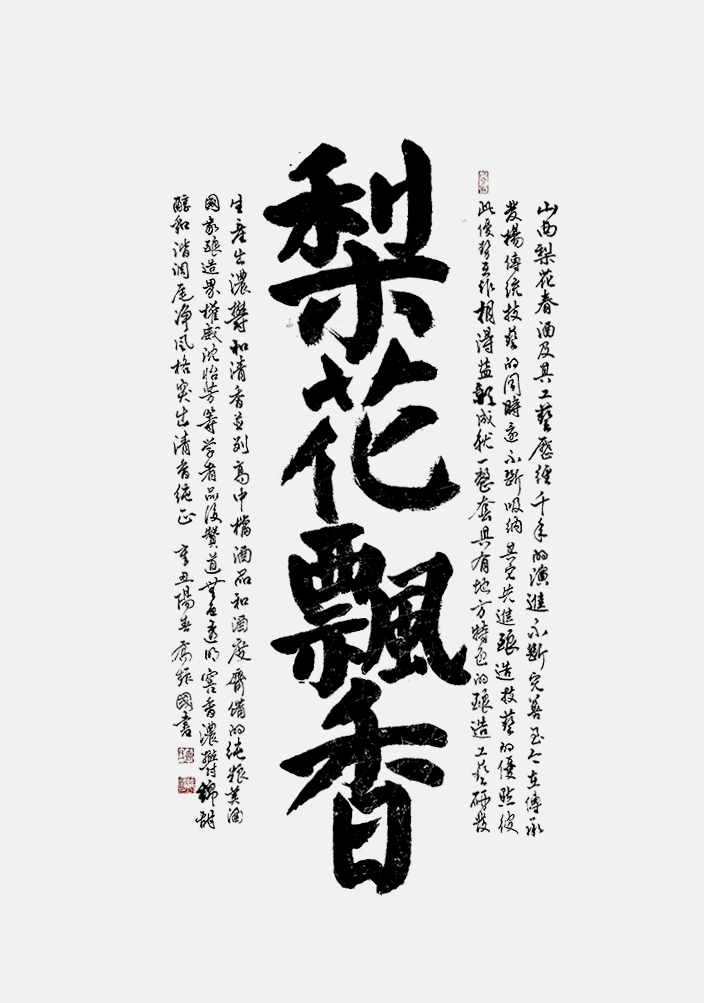 山西梨花春酒及其工藝歷經千年的演進不斷完善至今在傳承
發揚傳統技藝的同時還不斷吸納其它先進釀造技藝的優點彼
此優勢互作相得益彰成就一整套具有地方特色的釀造工藝研發
梨花飄香
生產出濃鬱和清香並列高中檔酒品和酒度齊備的純糧美酒
國家釀造界權威沈怡芳等學者品後贊道無色透明窖香濃鬱綿甜
醇和諧潤尾淨風格突出清香純正 辛丑陽春 國書